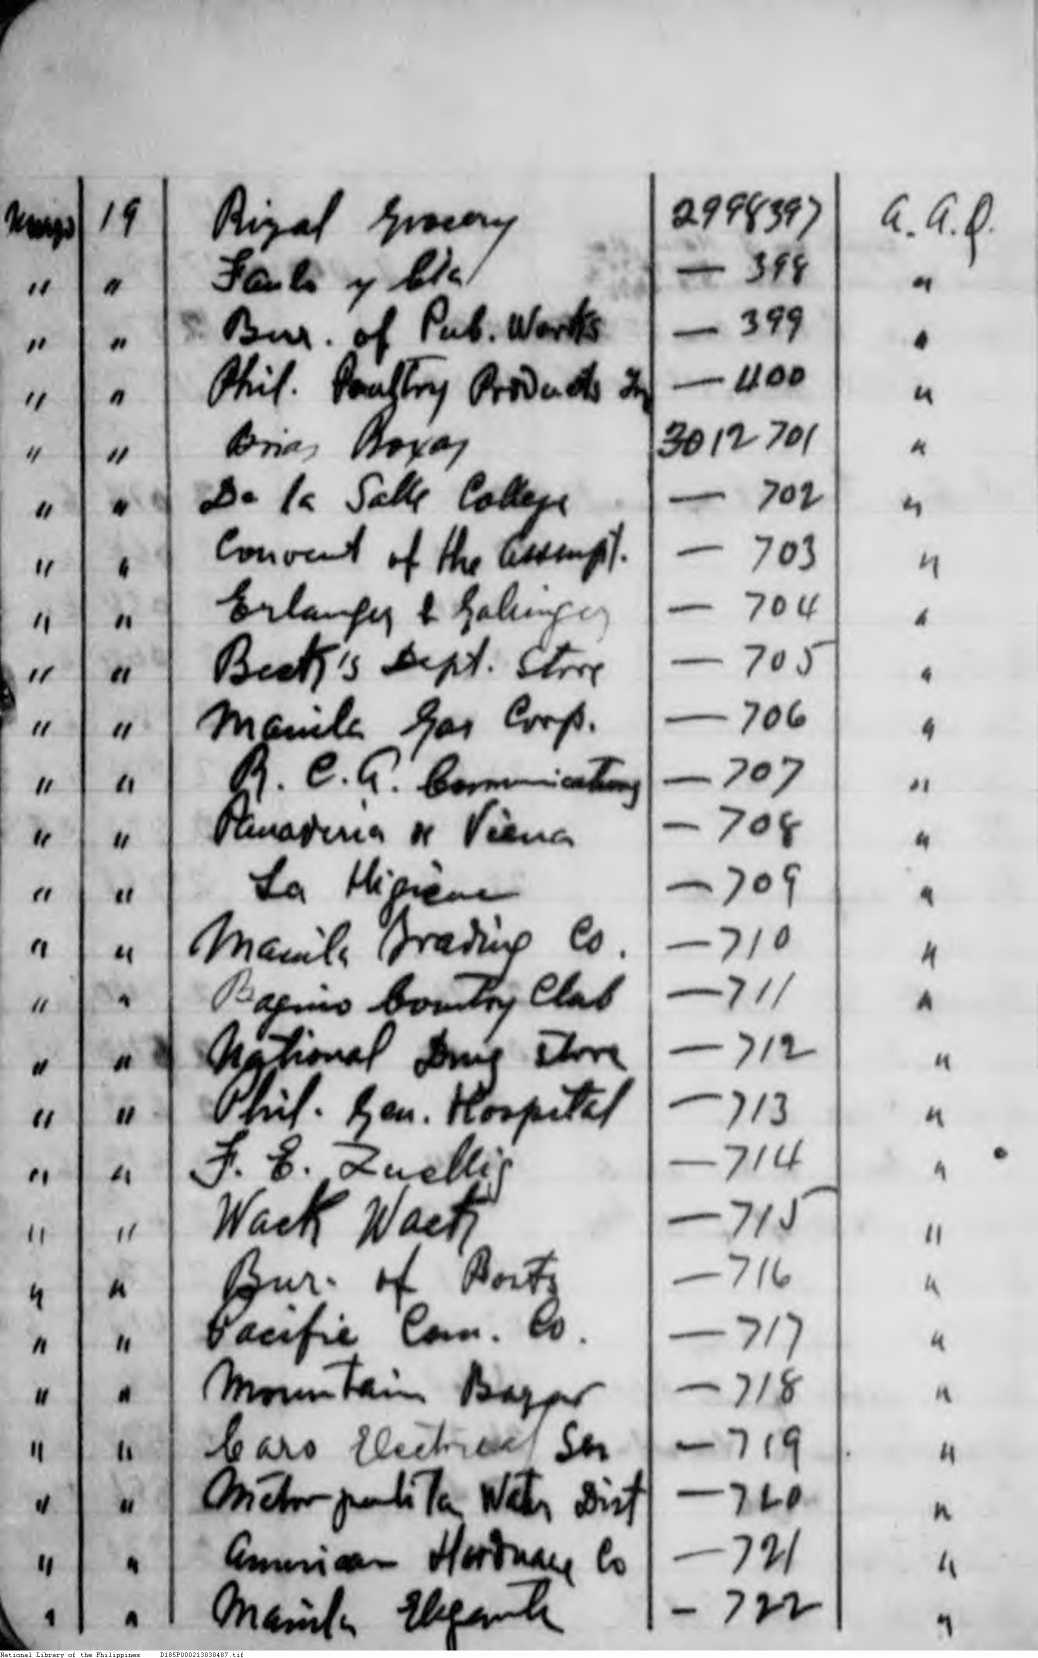 Marzo 19 Rizal Grocery 2998397 A. A. Q.
" " y Cia — 398 "
" " Bur. of Pub. Works — 399 "
" " Phil. Poultry Products In — 400 "
" " Roxas 3012701 "
" " De la Salle College — 702 "
" " Convent of the Assumpt. — 703 "
" " Erlanger & Galinger — 704 "
" " Beck's Dept. Store — 705 "
" " Manila Gas Corp. — 706 "
" " R. C. A. Communications — 707 "
" " Panaderia de Viena — 708 "
" " La Higiene — 709 "
" " Manila Trading Co. — 710 "
" " Baguio Country Club — 711 "
" " National Drug Store — 712 "
" " Phil. Gen. Hospital — 713 "
" " F. E. Zuellig — 714 "
" " Wack Wack — 715 "
" " Bur. of Posts — 716 "
" " Pacific Com. Co. — 717 "
" " Mountain Bazar — 718 "
" " Caro Electrical Ser — 719 "
" " Metropolitan Water Dist — 720 "
" " American Hardware Co — 721 "
" " Manila Elegante — 722 "
National Library of the Philippines D185P000213838487.tif